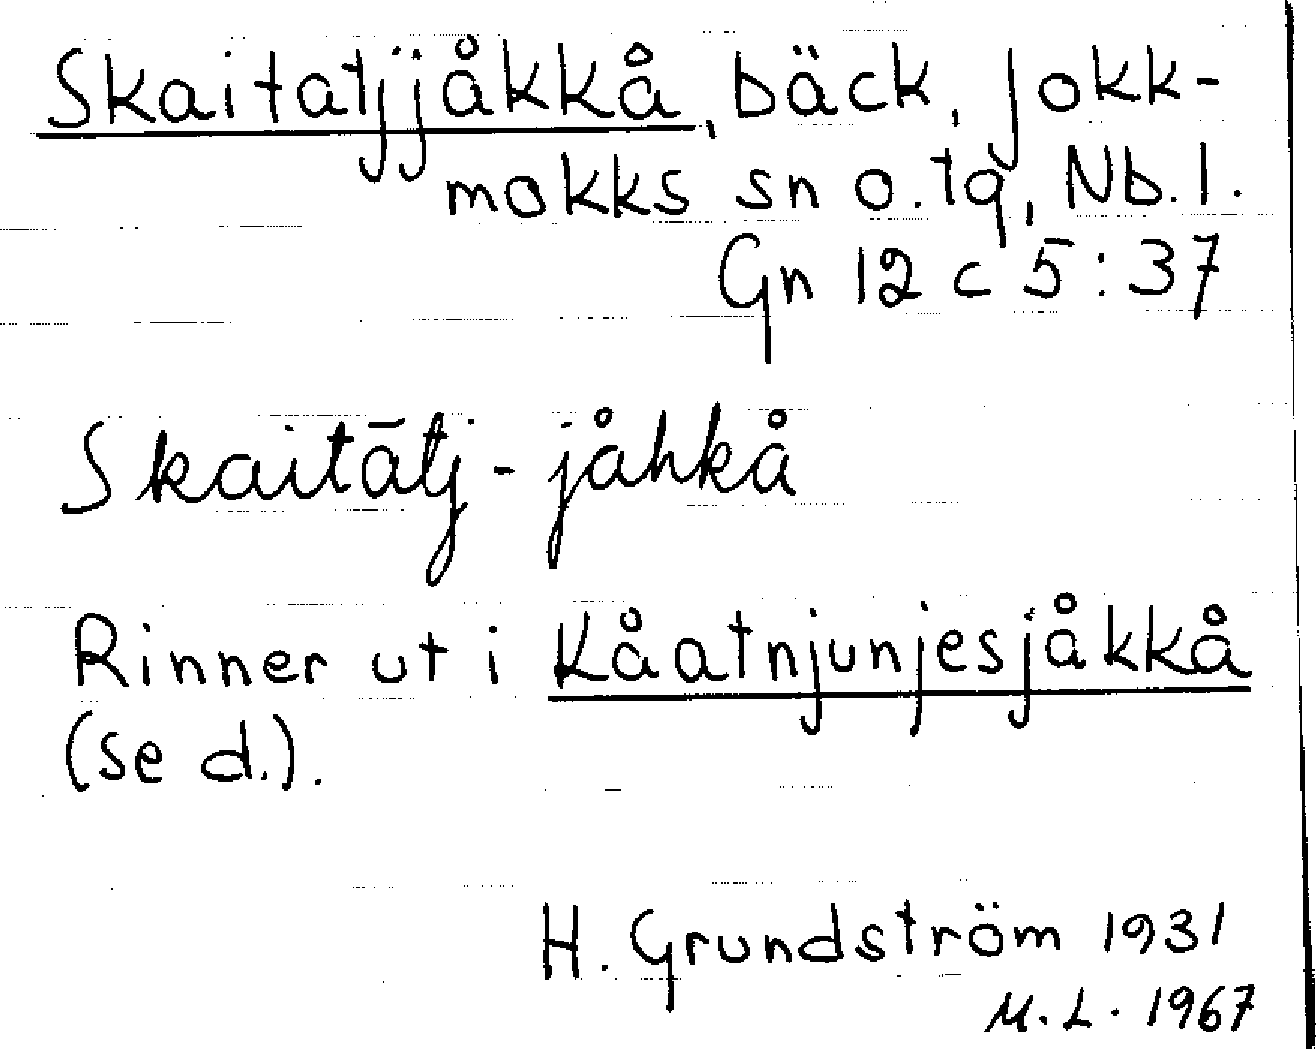 Skaitatjjåkkå, bäck, Jokk-
mokks sn o. tg, Nb. l.
Gn 12 c 5:37
Skaitātj-jåhkå
Rinner ut i Kåatnjunjesjåkkå
(se d.).
H. Grundström 1931
M. L. 1967